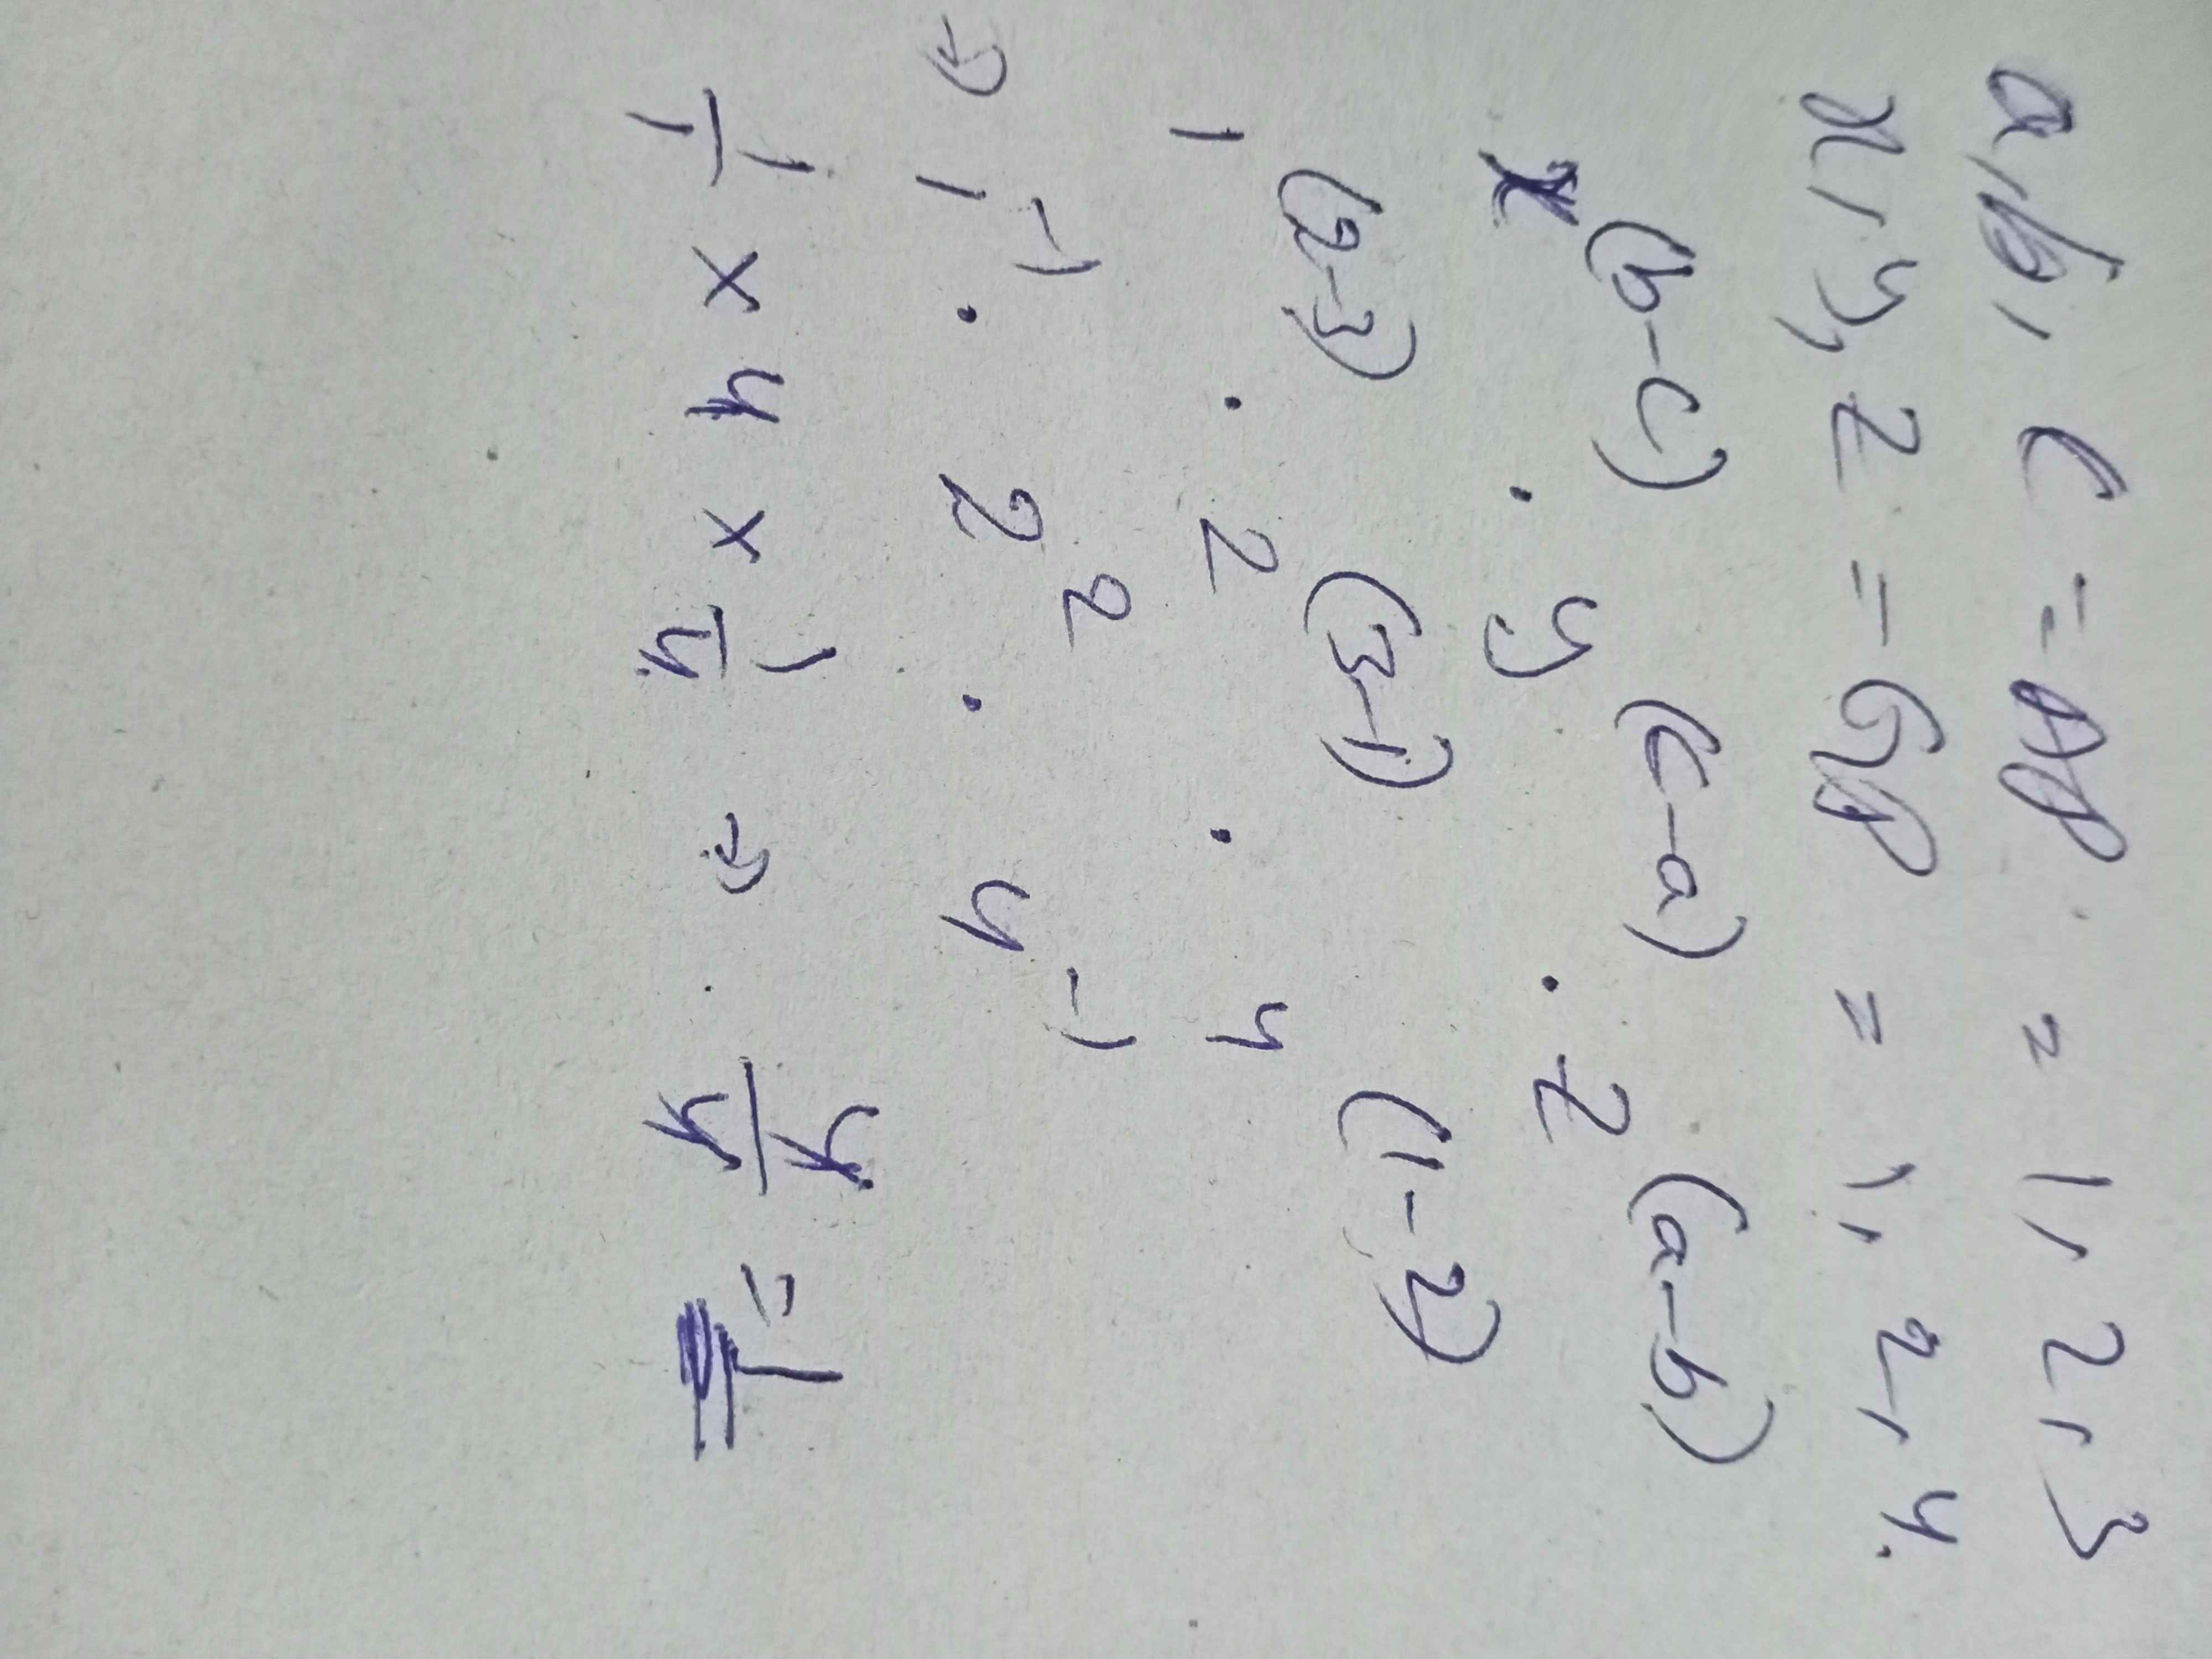 a, b, c = AP = 1, 2, 3
x, y, z = GP = 1, 2, 4.
x^(b-c) . y^(c-a) . z^(a-b)
1^(2-3) . 2^(3-1) . 4^(1-2)
⇒ 1^-1 . 2^2 . 4^-1
1/1 × 4 × 1/4 ⇒ 4/4 = 1